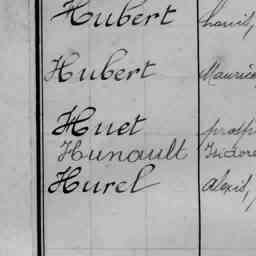 Hubert Louis,
Hubert Maurice
Huet prosp
Hunault Isidore
Hurel Alexis,